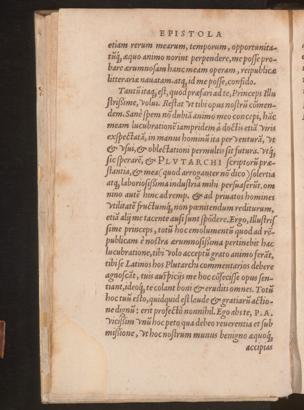 EPISTOLA
etiam rerum mearum, temporum, opportunita-
tũq́, aequo animo norint perpendere, me posse pro-
bare aerumnosam hanc meam operam, reipublicae
litterariae nauatam. atq, id me posse, confido.
Tantũ itaq, est, quod praefari ad te, Princeps Illu
strissime, volui. Restat vt tibi opus nostrũ cõmen-
dem. Sanè spem nõ dubiã animo meo concepi, hãc
meam lucubrationẽ iampridem à doctis etiã viris
exspectatã, in manus hominũ ita peruenturã, vt
& vsui, & oblectationi permultis sit futura. vtq́,
sic sperarẽ, & PLVTARCHI scriptorũ prae-
stantia, & mea (quod arroganter nõ dico) solertia
atq, laboriosissima industria mihi persuaserũt, om
nino autẽ hinc ad remp. & ad priuatos homines
vtilitatẽ fructũmq́, non paenitendum rediturum,
etiã alij me tacente ausi sunt spõdere. Ergo, Illustris
sime princeps, totũ hoc emolumentũ quod ad rẽ-
publicam è nostra aerumnosissima pertinebit hac
lucubratione, tibi volo acceptũ grato animo ferãt,
tibi se Latinos hos Plutarchi commentarios debere
agnoscãt, tuis auspicijs me hoc cõfecisse opus sen-
tiant, ideoq́, te colant boni & eruditi omnes. Totũ
hoc tuũ esto, quidquid est laude & gratiarũ actio-
ne dignũ: erit profectò nonnihil. Ego abs te, P. A.
vicissim vnũ hoc peto qua debeo reuerentia et sub
missione, vt hoc nostrum munus benigno aequoq́,
accipias